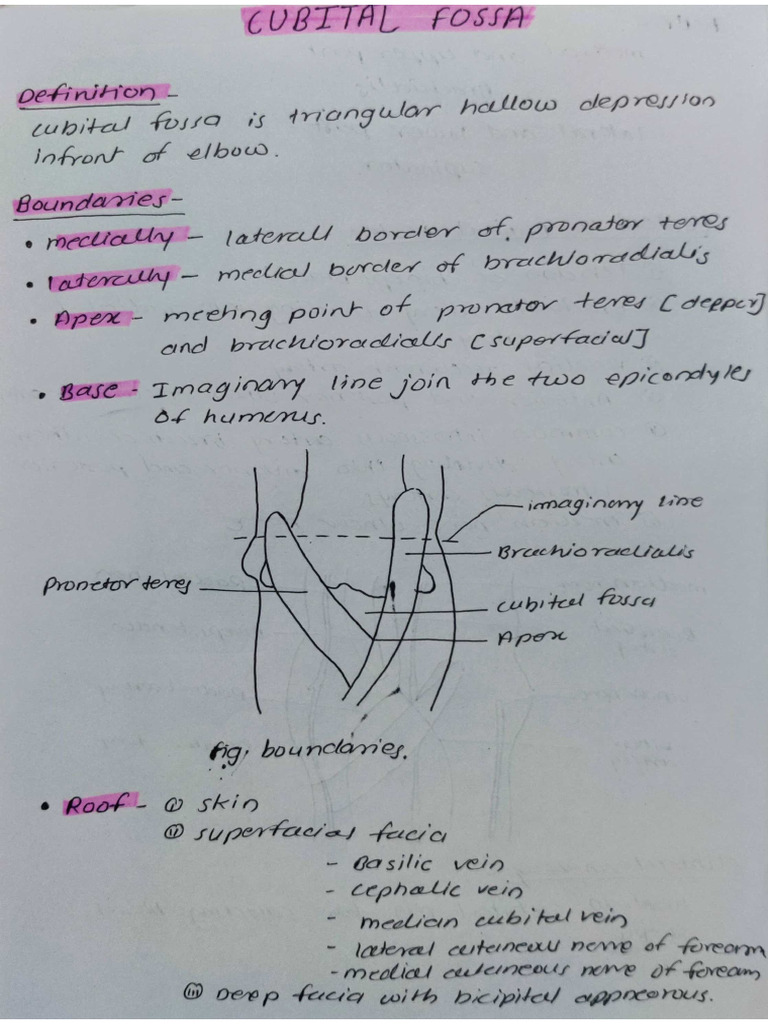 CUBITAL FOSSA
Definition -
cubital fossa is triangular hallow depression
infront of elbow.
Boundaries -
• medially - laterall border of. pronator teres
• laterally - medial border of brachioradialis
• Apex - meeting point of pronator teres [depper]
and brachioradialis [superfacial]
• Base - Imaginary line join the two epicondyles
of humerus.
imaginary line
Brachioradialis
Pronator teres
cubital fossa
Apex
fig, boundaries.
• Roof - (i) skin
(ii) superfacial facia
- Basilic vein
- cephalic vein
- median cubital vein
- lateral cutaneous nerve of forearm
- medial cutaneous nerve of foream
(iii) Deep facia with bicipital appneorous.